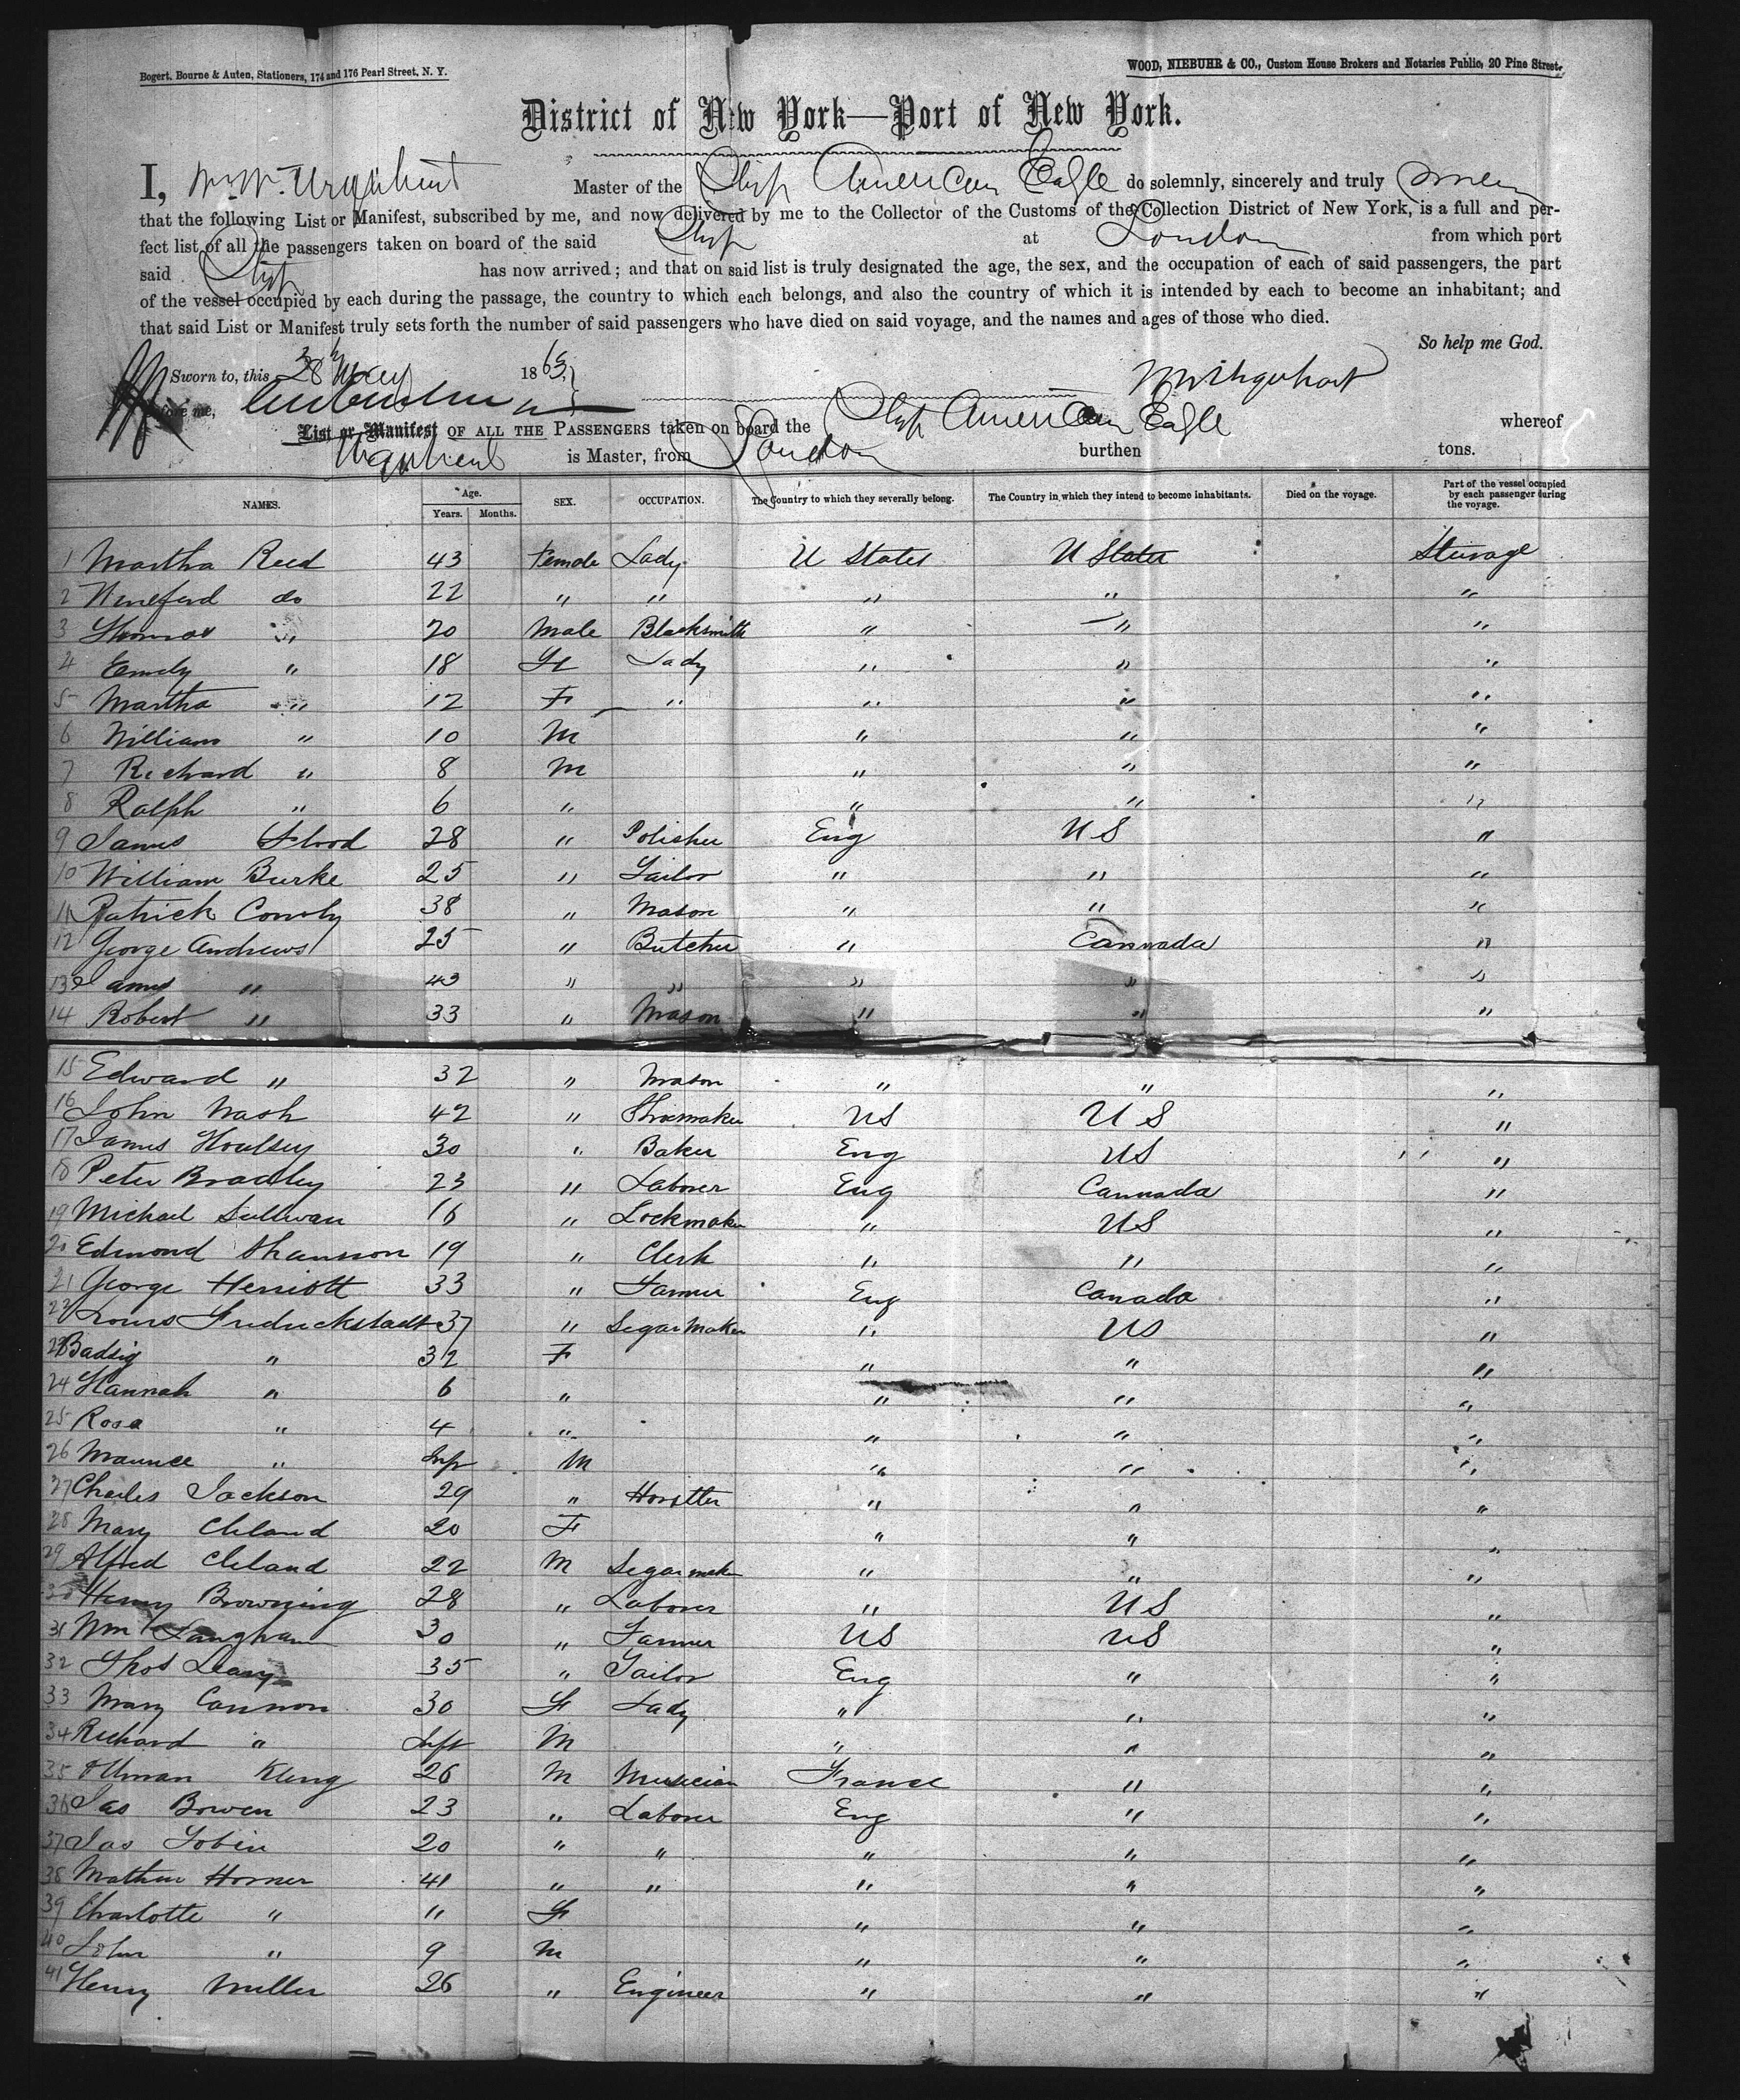 Bogert, Bourne & Auten, Stationers, 174 and 176 Pearl Street, N. Y.
WOOD, NIEBUHR & CO., Custom House Brokers and Notaries Public, 20 Pine Street.
District of New York—Port of New York.
I, W. W. Urquhart Master of the Ship American Eagle do solemnly, sincerely and truly swear
that the following List or Manifest, subscribed by me, and now delivered by me to the Collector of the Customs of the Collection District of New York, is a full and per-
fect list of all the passengers taken on board of the said Ship at London from which port
said Ship has now arrived; and that on said list is truly designated the age, the sex, and the occupation of each of said passengers, the part
of the vessel occupied by each during the passage, the country to which each belongs, and also the country of which it is intended by each to become an inhabitant; and
that said List or Manifest truly sets forth the number of said passengers who have died on said voyage, and the names and ages of those who died.
So help me God.
Sworn to, this 28 May 1865 W W Urquhart
before me,
List or Manifest OF ALL THE PASSENGERS taken on board the Ship American Eagle whereof
Urquhart is Master, from London burthen tons.
NAMES. Age. Years. Months. SEX. OCCUPATION. The Country to which they severally belong. The Country in which they intend to become inhabitants. Died on the voyage. Part of the vessel occupied by each passenger during the voyage.
1 Martha Reed 43 Female Lady U States U States Sturage
2 do 22 " " " " "
3 Thomas " 20 Male Blacksmith " " "
4 Emily " 18 F Lady " " "
5 Martha " 12 F " " " "
6 William " 10 M " " "
7 Richard " 8 M " " "
8 Ralph " 6 " " " "
9 James Flood 28 " Polisher Eng US "
10 William Burke 25 " Tailor " " "
11 Patrick Conoly 38 " Mason " " "
12 George Andrews 25 " Butcher " Cannada "
13 James " 43 " " " " "
14 Robert " 33 " Mason " " "
15 Edward " 32 " Mason " " "
16 John Nash 42 " Shoemaker US US "
17 James Houlsey 30 " Baker Eng US "
18 Peter Bradley 23 " Laborer Eng Cannada "
19 Michael Sullivan 16 " Lockmaker " US "
20 Edmond Shannon 19 " Clerk " " "
21 George Herriott 33 " Farmer Eng Canada "
22 Louis Fredrickstadt 37 " Segar Maker " US "
23 Badsig " 32 F " " "
24 Hannah " 6 " " " "
25 Rosa " 4 " " " "
26 Maurice " Inf M " " "
27 Charles Jackson 29 " " " "
28 Mary Cleland 20 F " " "
29 Alfred Cleland 22 M Segar maker " " "
30 Henry Browning 28 " Laborer " US "
31 Wm Langham 30 " Farmer US US "
32 Thos Leary 35 " Tailor Eng " "
33 Mary Cannon 30 F Lady " " "
34 Richard " Inft M " " "
35 Ottman Kling 26 M Musician France " "
36 Jas Bowen 23 " Laborer Eng " "
37 Jas Tobin 20 " " " " "
38 Mathew Horner 41 " " " " "
39 Charlotte " 11 F " " "
40 John " 9 M " " "
41 Henry Miller 26 " Engineer " " "